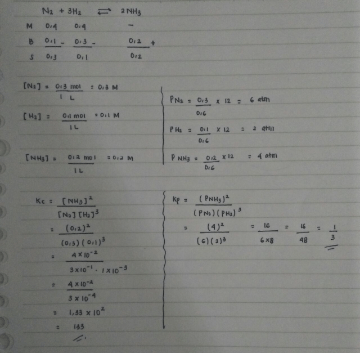 N₂ + 3H₂ ⇌ 2NH₃
M 0,4 0,4 -
B 0,1 - 0,3 - 0,2 +
S 0,3 0,1 0,2
[N₂] = 0,3 mol / 1 L = 0,3 M
[H₂] = 0,1 mol / 1 L = 0,1 M
[NH₃] = 0,2 mol / 1 L = 0,2 M
P N₂ = 0,3 / 0,6 × 12 = 6 atm
P H₂ = 0,1 / 0,6 × 12 = 2 atm
P NH₃ = 0,2 / 0,6 × 12 = 4 atm
Kc = [NH₃]² / [N₂][H₂]³
= (0,2)² / (0,3)(0,1)³
= 4 × 10⁻² / 3 × 10⁻¹ · 1 × 10⁻³
= 4 × 10⁻² / 3 × 10⁻⁴
= 1,33 × 10²
= 133
Kp = (PNH₃)² / (PN₂)(PH₂)³
= (4)² / (6)(2)³ = 16 / 6×8 = 16 / 48 = 1 / 3